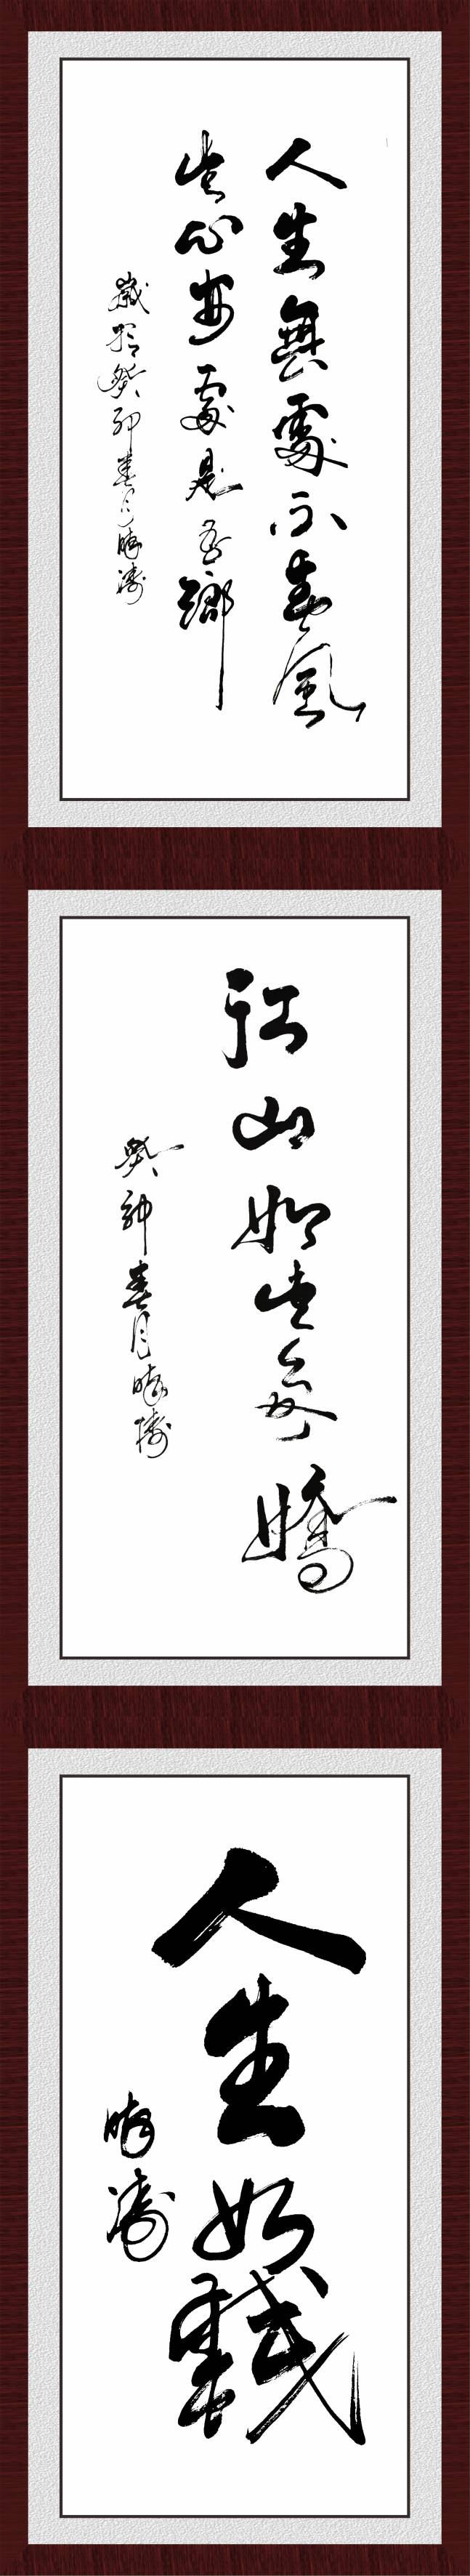 人生無處不春風
此心安處是吾鄉
歲於癸卯春月曉濤
江山如此多嬌
癸卯春月曉濤
人生如戲
曉濤